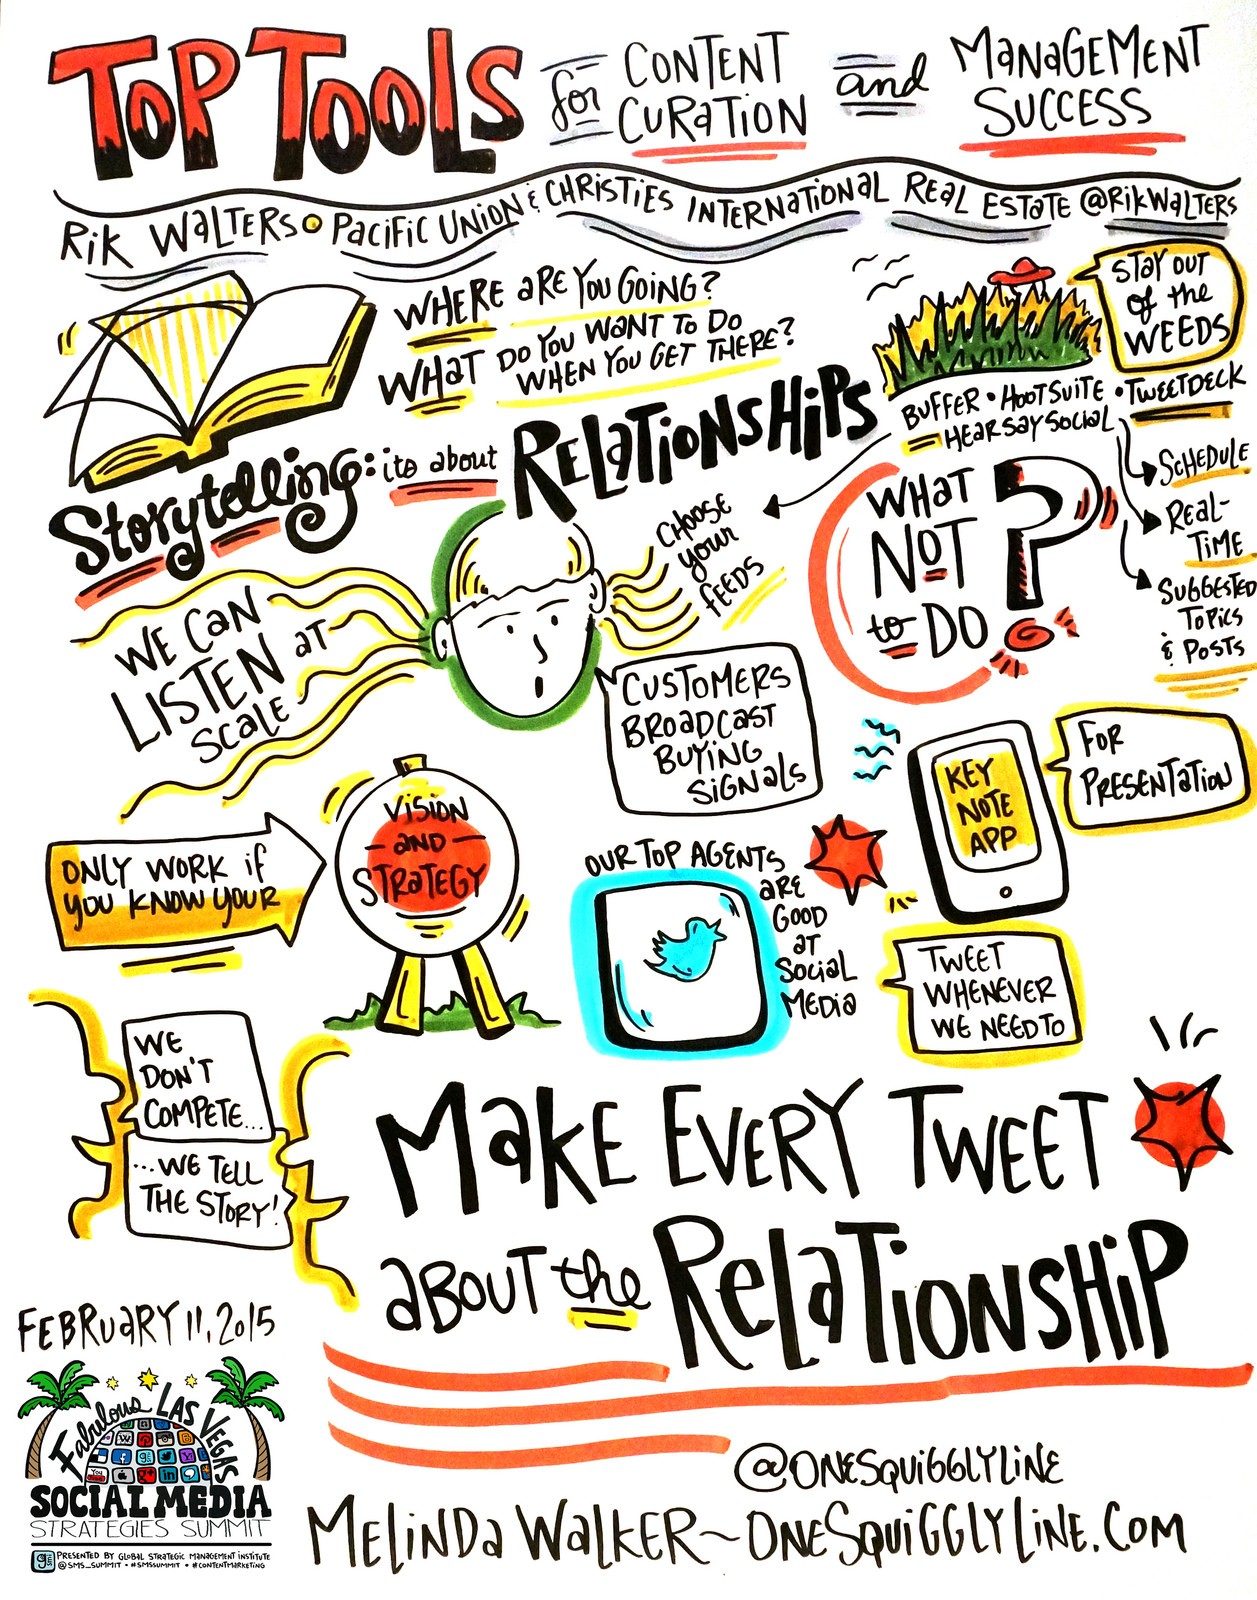 TOP TOOLS for CONTENT CURATION and MANAGEMENT SUCCESS
RIK WALTERS • PACIFIC UNION & CHRISTIES INTERNATIONAL REAL ESTATE @RIKWALTERS
WHERE ARE YOU GOING?
WHAT DO YOU WANT TO DO
WHEN YOU GET THERE?
STAY OUT
of the
WEEDS
Storytelling: its about RELATIONSHIPS
BUFFER • HOOTSUITE • TWEETDECK
HEARSAYSOCIAL
SCHEDULE
REAL-
TIME
SUGGESTED
TOPICS
& POSTS
CHOOSE
your
FEEDS
WHAT
NOT
to DO
?
WE CAN
LISTEN AT
SCALE
CUSTOMERS
BROADCAST
BUYING
SIGNALS
KEY
NOTE
APP
FOR
PRESENTATION
ONLY WORK if
YOU KNOW YOUR
VISION
-AND-
STRATEGY
OUR TOP AGENTS
ARE
GOOD
AT
SOCIAL
MEDIA
TWEET
WHENEVER
WE NEED TO
WE
DON'T
COMPETE...
...WE TELL
THE STORY!
MAKE EVERY TWEET
ABOUT the RELATIONSHIP
FEBRUARY 11, 2015
Fabulous LAS VEGAS
SOCIAL MEDIA
STRATEGIES SUMMIT
PRESENTED BY GLOBAL STRATEGIC MANAGEMENT INSTITUTE
@SMS_SUMMIT • #SMSSUMMIT • #CONTENTMARKETING
@ONESQUIGGLYLINE
MELINDA WALKER~ONESQUIGGLYLINE.COM